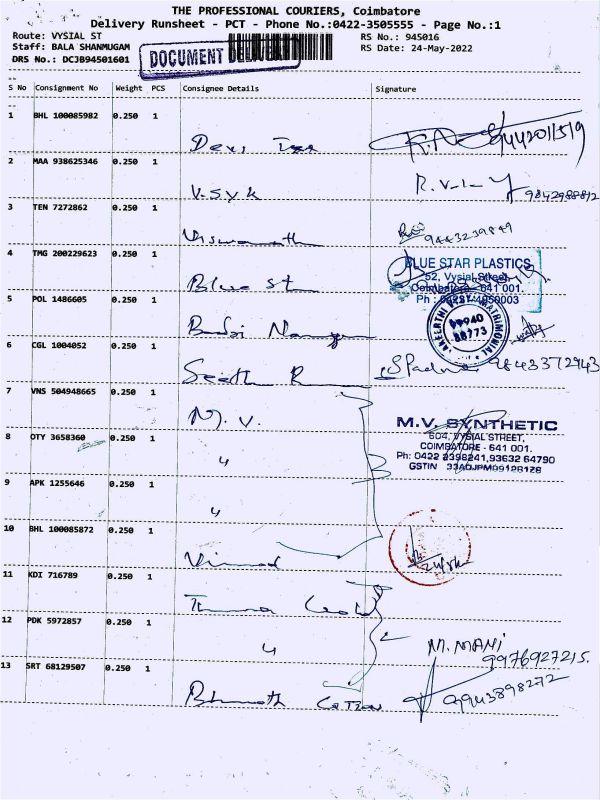 THE PROFESSIONAL COURIERS, Coimbatore
Delivery Runsheet - PCT - Phone No.:0422-3505555 - Page No.:1
Route: VYSIAL ST
RS No.: 945016
Staff: BALA SHANMUGAM
RS Date: 24-May-2022
DRS No.: DCJB94501601
DOCUMENT DELIVERY
S No Consignment No Weight PCS Consignee Details Signature
1 BHL 100085982 0.250 1
Devi
9442011519
2 MAA 938625346 0.250 1
V.S.V.K
9842988812
3 TEN 7272862 0.250 1
Viswanath
9443239849
4 TMG 200229623 0.250 1
Blue st
BLUE STAR PLASTICS
52, Vysial Street,
Coimbatore - 641 001.
5 POL 1486605 0.250 1
MATRIMONIAL
99940
88773
6 CGL 1004052 0.250 1
9843372943
7 VNS 504948665 0.250 1
M. V.
M.V. SYNTHETIC
604, VYSIAL STREET,
COIMBATORE - 641 001.
Ph: 0422 2398241,93632 64790
8 OTY 3658360 0.250 1
"
9 APK 1255646 0.250 1
"
10 BHL 100085872 0.250 1
Vinod
11 KDI 716789 0.250 1
12 PDK 5972857 0.250 1
"
M. MANI
9976927215.
13 SRT 68129507 0.250 1
Bharath Cotton
9943898272